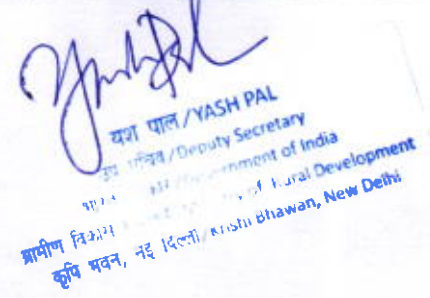 यश पाल/YASH PAL
उप सचिव/Deputy Secretary
of India
ग्रामीण विकास of Rural Development
कृषि भवन, नई दिल्ली/Krishi Bhawan, New Delhi